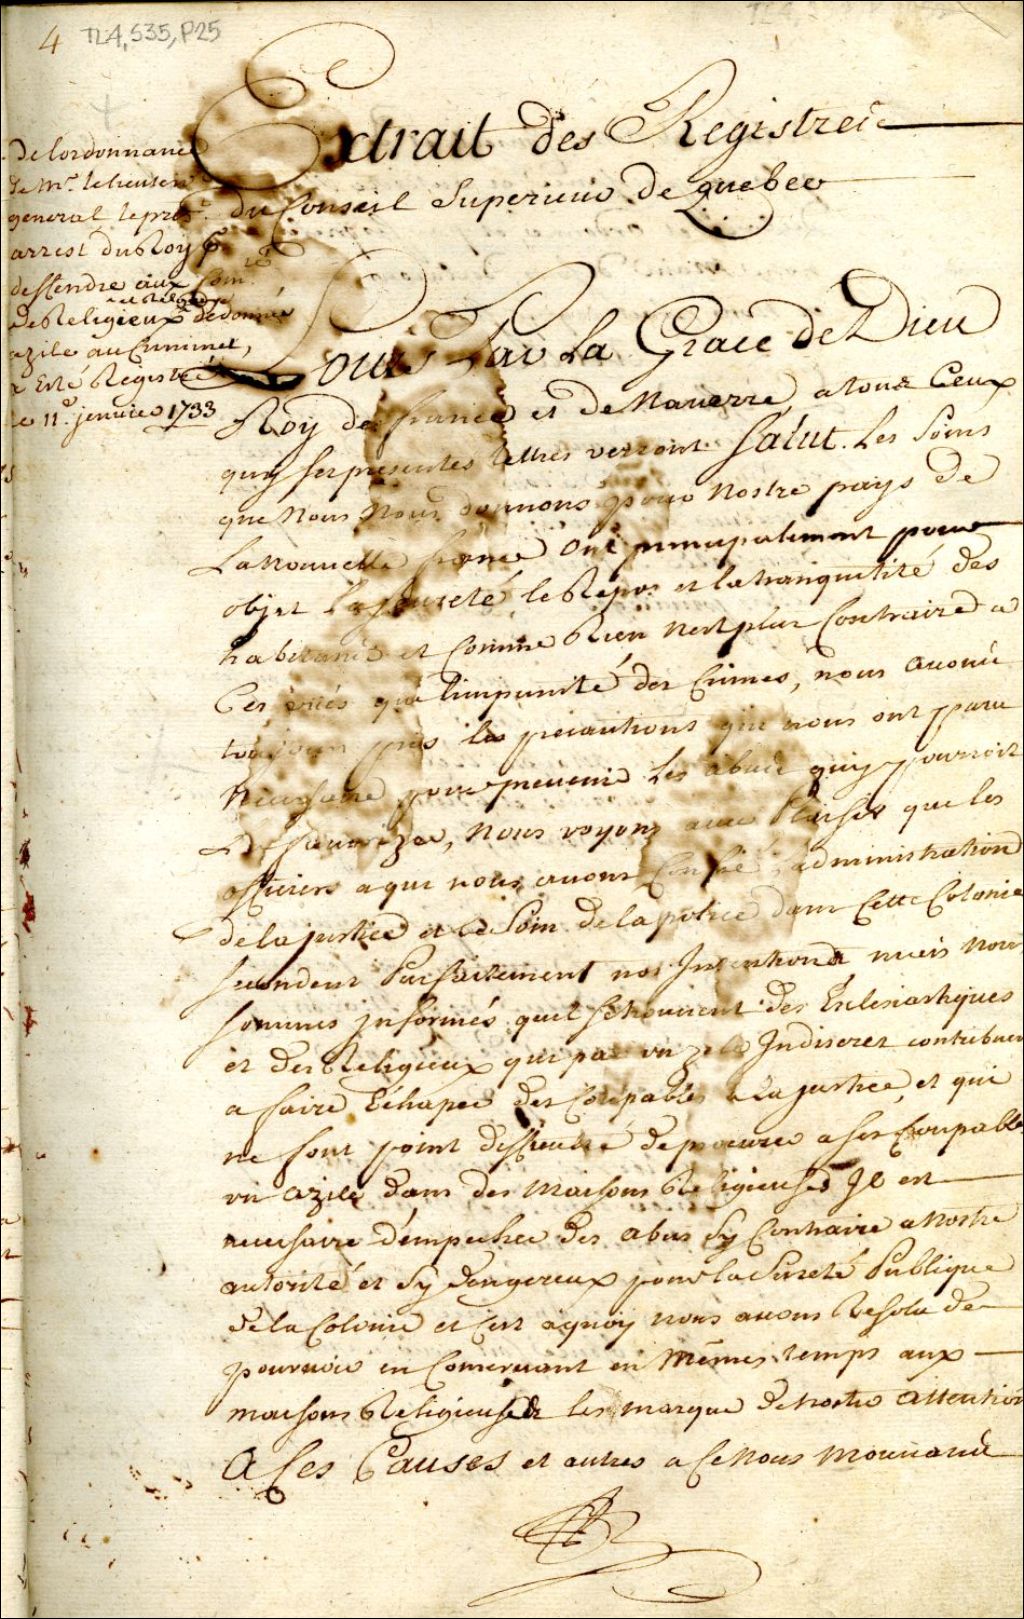 4 TL4, S35, P25
De lordonnance
de Mr. le lieutent
general le prest.
arrest du Roy
deffendre aux Comtés
de Religieux de donner
azile au Criminel,
a Esté Registré
le 11e. janvier 1733
Extrait des Registres
du Conseil Superieur de quebec
Louis Par La Grace de Dieu
Roy de france et de Navarre, atous Ceux
quy ses presentes Lettres verront Salut. Les Soins
que Nous Nous donnons pour Nostre pays de
La Nouvelle france ont principalement pour
objet La seureté, le Repos et la tranquilité des
habitans et Comme Rien nest plus Contraire a
Ces vües que limpunité des Crimes, nous avons
toujours pris les precautions qui nous ont paru
Necessaire pour prevenir Les abus quy pourroit
La favorizer, Nous voyons avec Plaisir que les
officiers a qui nous avons Confié Ladministration
de la justice et le Soin de la police dans Cette Colonie
secondent Parfaitement nos Intentions mais Nous
sommes jnformés quil se trouvent des Eclesiastiques
et des Religieux qui par un zele Indiscret contribuent
a faire Echaper des Coupables a La justice, et qui
ne font point difficulté de procurer a ses Coupables
un azile dans des Maisons Religieuses Jl est
necessaire d'empecher des abus sy Contraire a Nostre
autorité et sy dangereux pour la Sureté Publique
de la Colonie et C'est a quoy nous avons Resolu de
pourvoir en Conservant en Mêmes temps aux
maisons Religieuses les marque de Nostre attention
A Ces Causes et autres a Ce Nous Mouvans